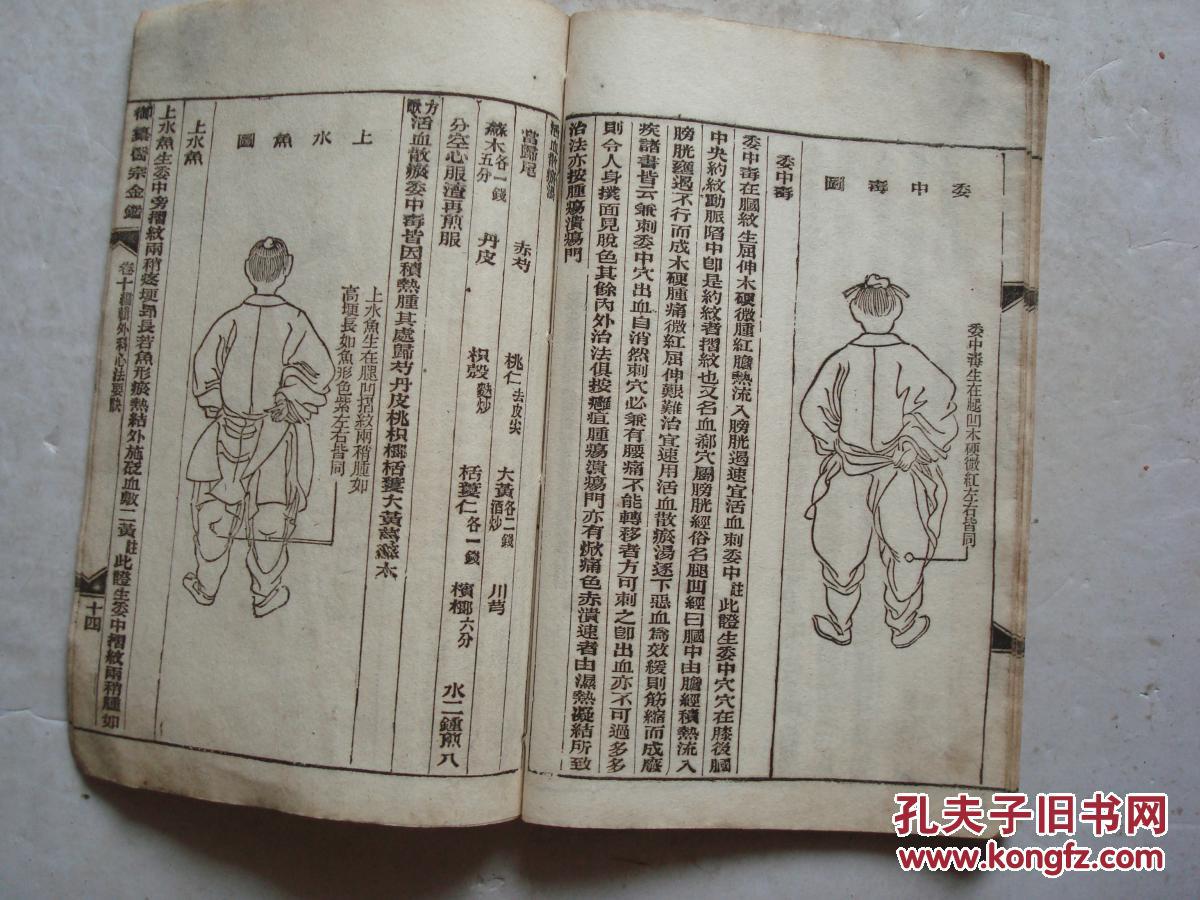 圖毒中委
委中毒生在腿凹木硬微紅左右皆同
委中毒
委中毒在膕紋生屈伸木硬微腫紅膽熱流入膀胱遏速宜活血刺委中註此證生委中穴穴在膝後膕
中央約紋動脈陷中卽是約紋者摺紋也又名血郄穴屬膀胱經俗名腿凹經曰膕中由膽經積熱流入
膀胱壅遏不行而成木硬腫痛微紅屈伸艱難治宜速用活血散瘀湯逐下惡血爲效緩則筋縮而成廢
疾諸書皆云兼刺委中穴出血自消然刺穴必兼有腰痛不能轉移者方可刺之卽出血亦不可過多多
則令人身撲面見脫色其餘內外治法俱按癰疽腫瘍潰瘍門亦有焮痛色赤潰速者由濕熱凝結所致
治法亦按腫瘍潰瘍門
活血散瘀湯
當歸尾 赤芍 桃仁去皮尖 大黃酒炒各二錢 川芎
蘇木各一錢五分 丹皮 枳殼麩炒 栝蔞仁各一錢 檳榔六分 水二鍾煎八
分空心服渣再煎服
方歌活血散瘀委中毒皆因積熱腫其處歸芍丹皮桃枳榔栝蔞大黃芎蘇木
上水魚生在腿凹摺紋兩稍腫如
高埂長如魚形色紫左右皆同
圖魚水上
上水魚
上水魚生委中旁摺紋兩稍疼埂昂長若魚形瘀熱結外施砭血敷二黃註此證生委中摺紋兩稍腫如
御纂醫宗金鑑 卷十 編輯外科心法要訣 十四
孔夫子旧书网
www.kongfz.com